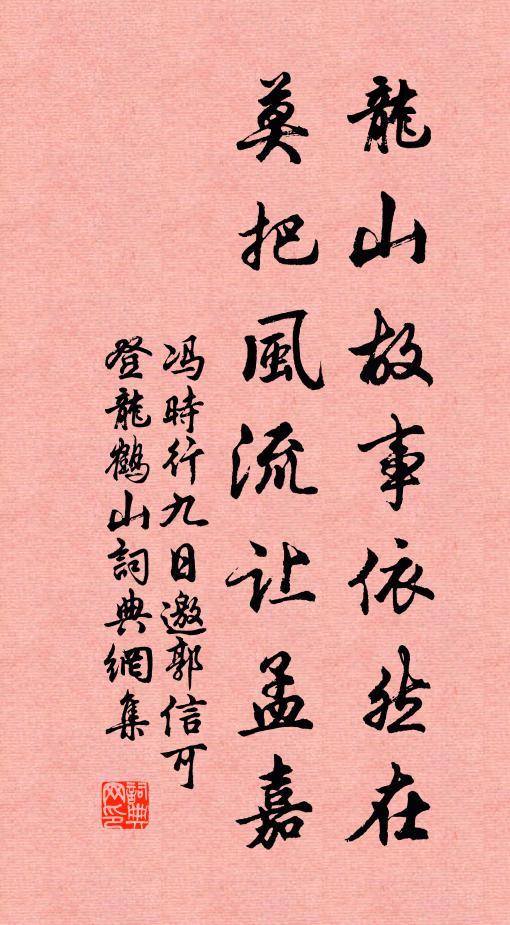 龍山故事依然在
莫把風流让孟嘉
冯時行九日邀郭信可
登龍鶴山詞典網集
詞典
网印